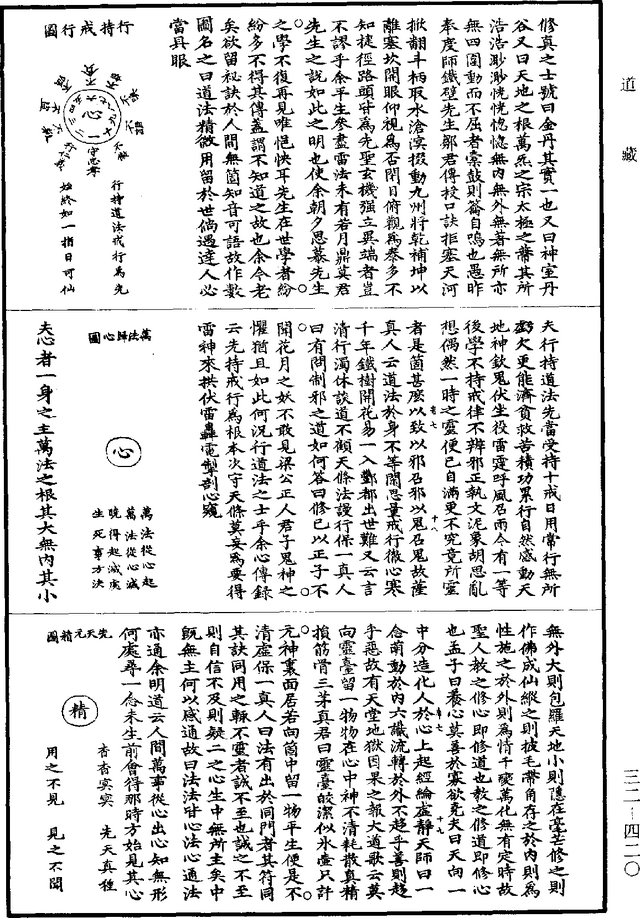 道藏
修真之士號曰金丹其實一也又曰神室丹
谷又曰天地之根萬炁之宗太極之蔕其所
浩浩渺渺恍恍惚惚無內無外無著無所亦
無四圍動而不屈者橐鼓則籥自鳴也愚昨
奉度師鐵壁先生鄒君傳授口訣拒塞天河
掀翻斗柄取水滄溟掇動九州將乾補坤以
離塞坎開眼仰視為否閉目俯觀為泰多不
知捷徑路頭甘為先聖玄機強立異端者豈
不謬乎余平生參盡雷法未有若月鼎莫君
先生之說如此之明也使余朝夕思慕先生
之學不復再見唯悒怏耳先生在世學者紛
紛多不得其傳蓋謂不知道之故也余今老
矣欲留祕訣於人間無箇知音可語故作數
圖名之曰道法精微用留於世倘遇達人必
當具眼
行持戒行圖
心
守忠孝
行持道法戒行為先
始終如一指日可仙
夫行持道法先當受持十戒日用常行無所
虧欠更能濟貧救苦積功累行自然感動天
地神欽鬼伏生役雷霆呼風召雨今有一等
後學不持戒律不辨邪正執文泥象胡思亂
想偶然一時之靈便已自滿更不究竟所靈
者是箇甚麼以致以邪召邪以鬼召鬼故薩
真人云道法於身不等閑思量戒行徹心寒
千年鐵樹開花易一入酆都出世難又云言
清行濁休談道不顧天條法謾行保一真人
曰有問制邪之道如何答曰修已以正子不
聞花月之妖不敢見梁公正人君子鬼神之
懼猶且如此何況行道法之士乎余心傳錄
云先持戒行為根本次守天條莫妄為要得
雷神來拱伏雷轟電掣剖心窺
萬法歸心圖
心
萬法從心起
萬法從心滅
曉得起滅處
生死事方決
夫心者一身之主萬法之根其大無內其小
無外大則包羅天地小則隱在毫芒修之則
作佛成仙縱之則披毛帶角存之於內則為
性施之於外則為情千變萬化無有定時故
聖人教之修心即修道也教之修道即修心
也孟子曰養心莫善於寡欲堯夫曰天向一
中分造化人於心上起經綸虛靜天師曰一
念萌動於內六識流轉於外不趨乎善則趨
乎惡故有天堂地獄因果之報大道歌云莫
向靈臺留一物物在心中神不清耗散真精
損筋骨三茅真君曰靈臺皎潔似冰壺只許
元神裏面居若向箇中留一物平生便是不
清虛保一真人曰法有出於同門者其符同
其訣同用之輒不靈者誠不至也誠之不至
則自信不及則疑二之心生中無所主矣中
既無主何以感通故曰法法甘心法心通法
亦通余明道云人間萬事從心出心如無形
何處尋一念未生前會得那時方始見其心
先天元精圖
精
杳杳冥冥　先天真種
用之不見　見之不聞
三二—四二〇